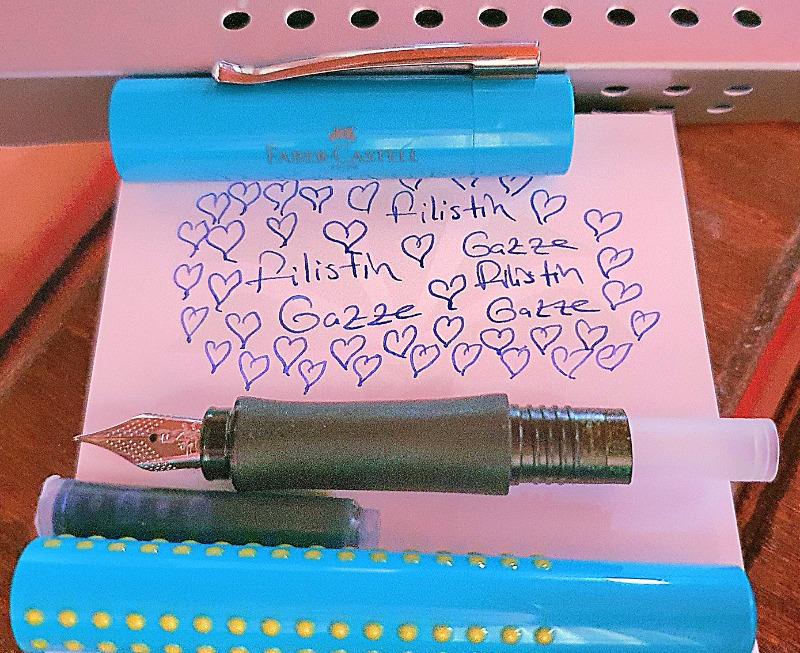 FABER-CASTELL
Filistin
Gazze
Filistin Filistin
Gazze Gazze